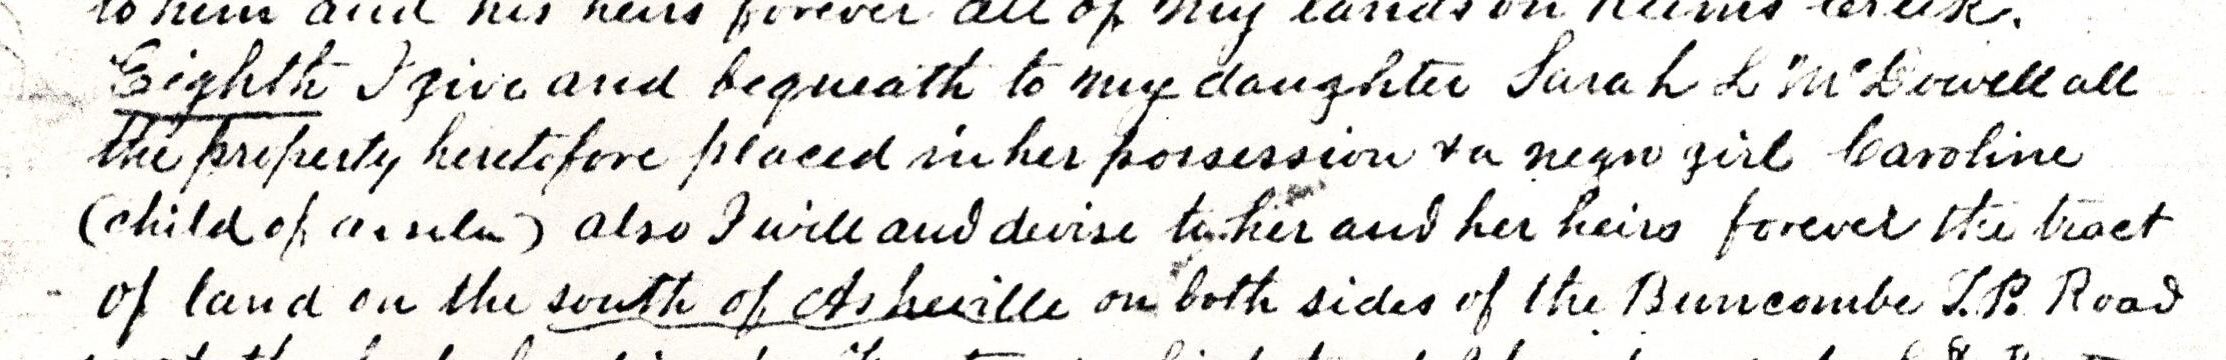 to him and his heirs forever all of my lands on Reims Creek.
Eighth I give and bequeath to my daughter Sarah L McDowell all
the property heretofore placed in her possession & a negro girl Caroline
(child of ) also I will and devise to her and her heirs forever the tract
of land on the south of Asheville on both sides of the Buncombe T.P. Road